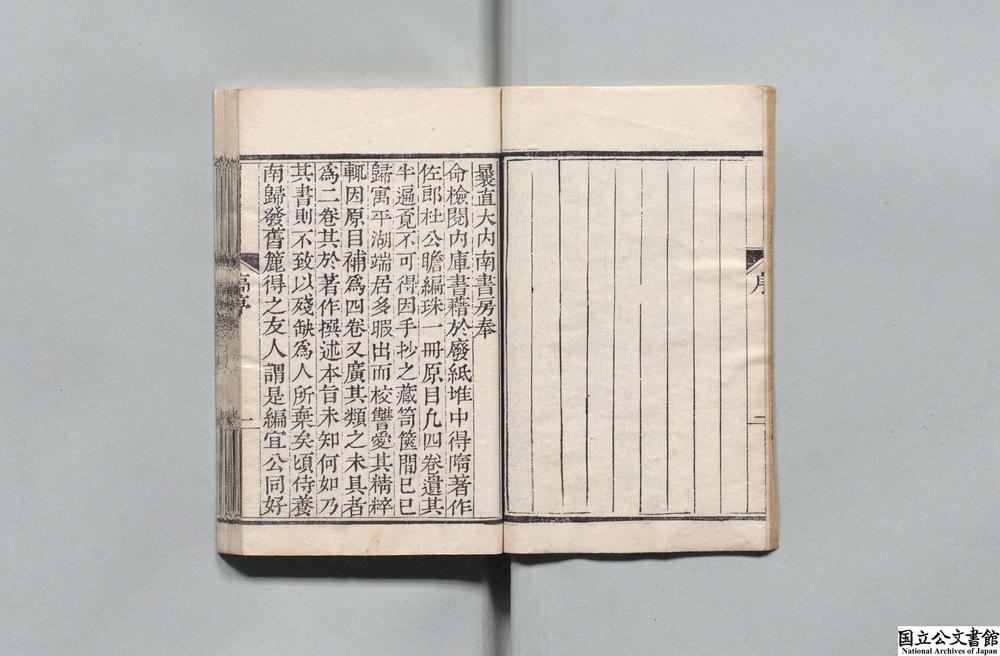 序
曩直大内南書房奉
命檢閱内庫書藉於廢紙堆中得隋著作
佐郎杜公瞻編珠一冊原目凡四卷遺其
半遍覓不可得因手抄之藏笥篋間已巳
歸寓平湖端居多暇出而校讐愛其精粹
輒因原目補爲四卷又廣其類之未具者
爲二卷其於著作撰述本旨未知何如乃
其書則不致以殘缺爲人所棄矣頃侍養
南歸發舊簏得之友人謂是編宜公同好
一
国立公文書館
National Archives of Japan